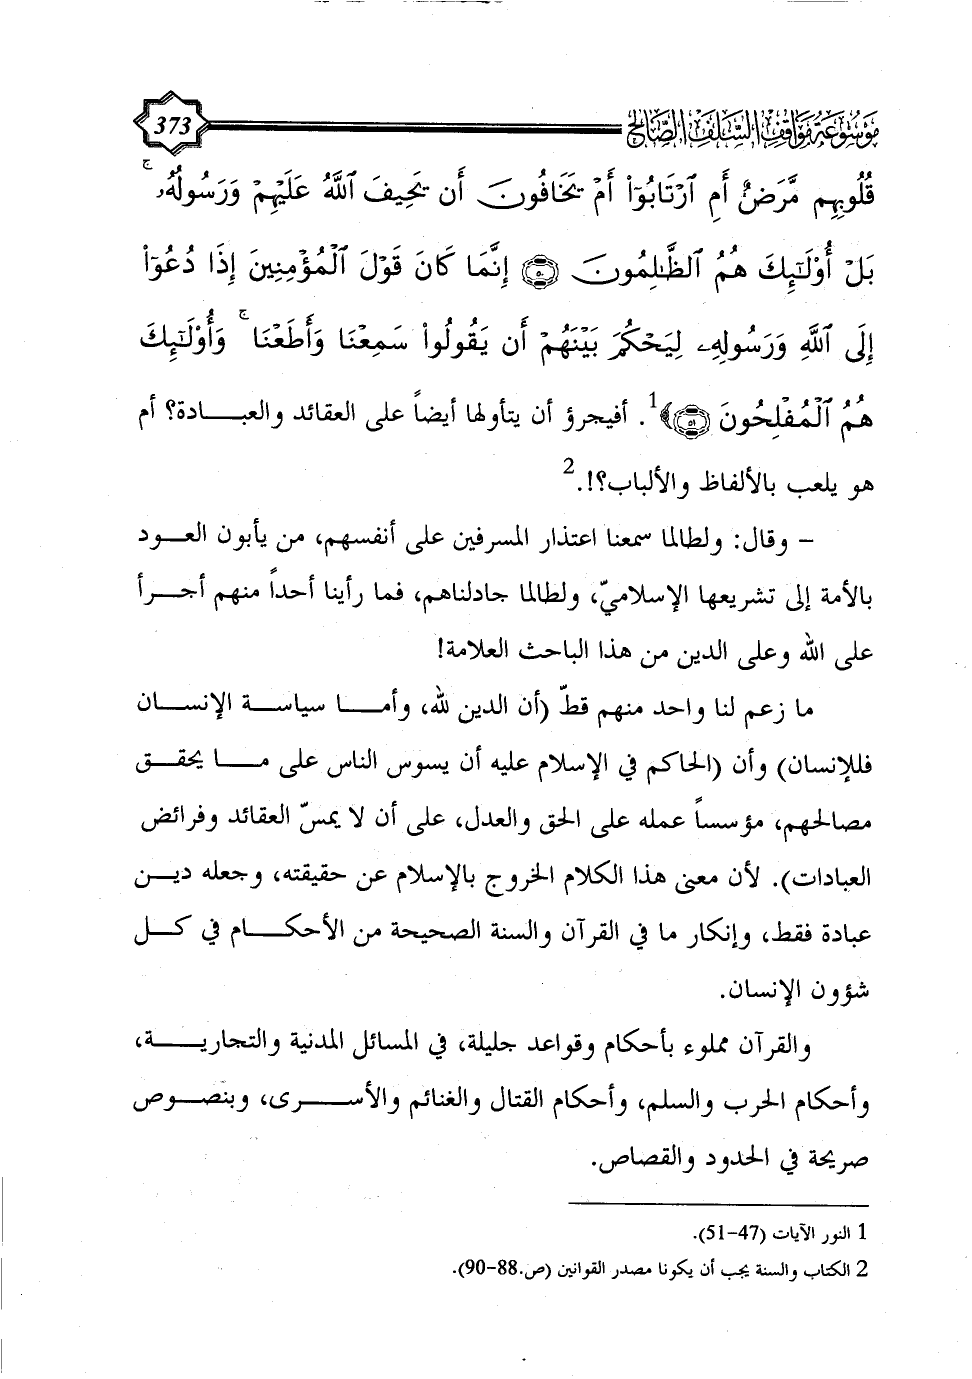 موسوعة مواقف السلف الصالح
373
قُلُوبِهِم مَّرَضٌ أَمِ ٱرْتَابُوٓا۟ أَمْ يَخَافُونَ أَن يَحِيفَ ٱللَّهُ عَلَيْهِمْ وَرَسُولُهُۥ ۚ
بَلْ أُو۟لَـٰٓئِكَ هُمُ ٱلظَّـٰلِمُونَ ﴿٥٠﴾ إِنَّمَا كَانَ قَوْلَ ٱلْمُؤْمِنِينَ إِذَا دُعُوٓا۟
إِلَى ٱللَّهِ وَرَسُولِهِۦ لِيَحْكُمَ بَيْنَهُمْ أَن يَقُولُوا۟ سَمِعْنَا وَأَطَعْنَا ۚ وَأُو۟لَـٰٓئِكَ
هُمُ ٱلْمُفْلِحُونَ ﴿٥١﴾﴾1. أفيجرؤ أن يتأولها أيضاً على العقائد والعبادة؟ أم
هو يلعب بالألفاظ والألباب؟!.2
– وقال: ولطالما سمعنا اعتذار المسرفين على أنفسهم، من يأبون العود
بالأمة إلى تشريعها الإسلاميّ، ولطالما جادلناهم، فما رأينا أحداً منهم أجرأ
على الله وعلى الدين من هذا الباحث العلامة!
ما زعم لنا واحد منهم قطّ (أن الدين لله، وأما سياسة الإنسان
فللإنسان) وأن (الحاكم في الإسلام عليه أن يسوس الناس على ما يحقق
مصالحهم، مؤسساً عمله على الحق والعدل، على أن لا يمسّ العقائد وفرائض
العبادات). لأن معنى هذا الكلام الخروج بالإسلام عن حقيقته، وجعله دين
عبادة فقط، وإنكار ما في القرآن والسنة الصحيحة من الأحكام في كل
شؤون الإنسان.
والقرآن مملوء بأحكام وقواعد جليلة، في المسائل المدنية والتجارية،
وأحكام الحرب والسلم، وأحكام القتال والغنائم والأسرى، وبنصوص
صريحة في الحدود والقصاص.
1 النور الآيات (47-51).
2 الكتاب والسنة يجب أن يكونا مصدر القوانين (ص.88-90).